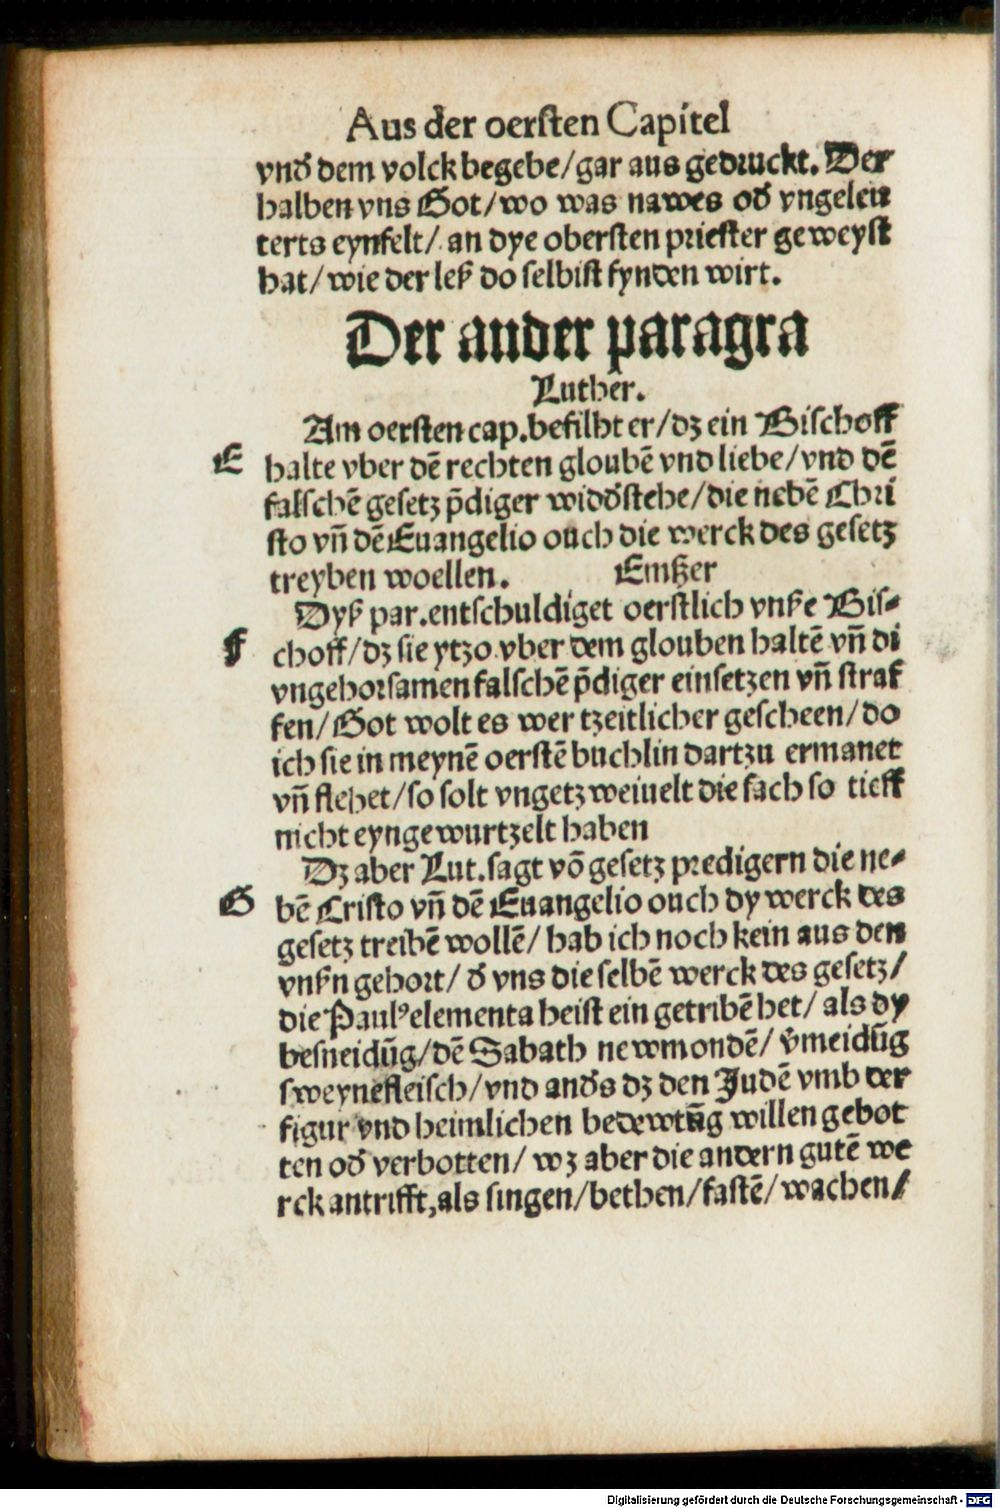 Aus der oersten Capitel
vnd̕ dem volck begebe/gar aus gedruckt. Der
halben vns Got/wo was nawes od̕ vngeleu
terts eynfelt/ an dye obersten priester geweyst
hat/wie der leß do selbist fynden wirt.
Der ander paragra
Luther.
Am oersten cap.befilht er/dz ein Bischoff
E halte vber dē rechten gloubē vnd liebe/vnd dē
falschē gesetz p̄diger widd̕stehe/die nebē Chri
sto vn̄ dē Euangelio ouch die werck des gesetz
treyben woellen. Emßer
Dyß par.entschuldiget oerstlich vnße Bis-
F choff/dz sie ytzo vber dem glouben haltē vn̄ di
vngehorsamen falschē p̄diger einsetzen vn̄ straf
fen/Got wolt es wer tzeitlicher gescheen/do
ich sie in meynē oerstē buchlin dartzu ermanet
vn̄ flehet/so solt vngetzweiuelt die sach so tieff
nicht eyngewurtzelt haben
Dz aber Lut.sagt vō gesetz predigern die ne-
G bē Cristo vn̄ dē Euangelio ouch dy werck des
gesetz treibē wollē/ hab ich noch kein aus den
vnßn gehort/ d̕ vns die selbē werck des gesetz/
die Paulꝰ elementa heist ein getribē het/ als dy
besneidūg/dē Sabath newmondē/ v̕meidūg
sweynefleisch/vnd and̕s dz den Judē vmb der
figur vnd heimlichen bedewtūg willen gebot
ten od̕ verbotten/ wz aber die andern gutē we
rck antrifft,als singen/bethen/fastē/wachen/
Digitalisierung gefördert durch die Deutsche Forschungsgemeinschaft - DFG